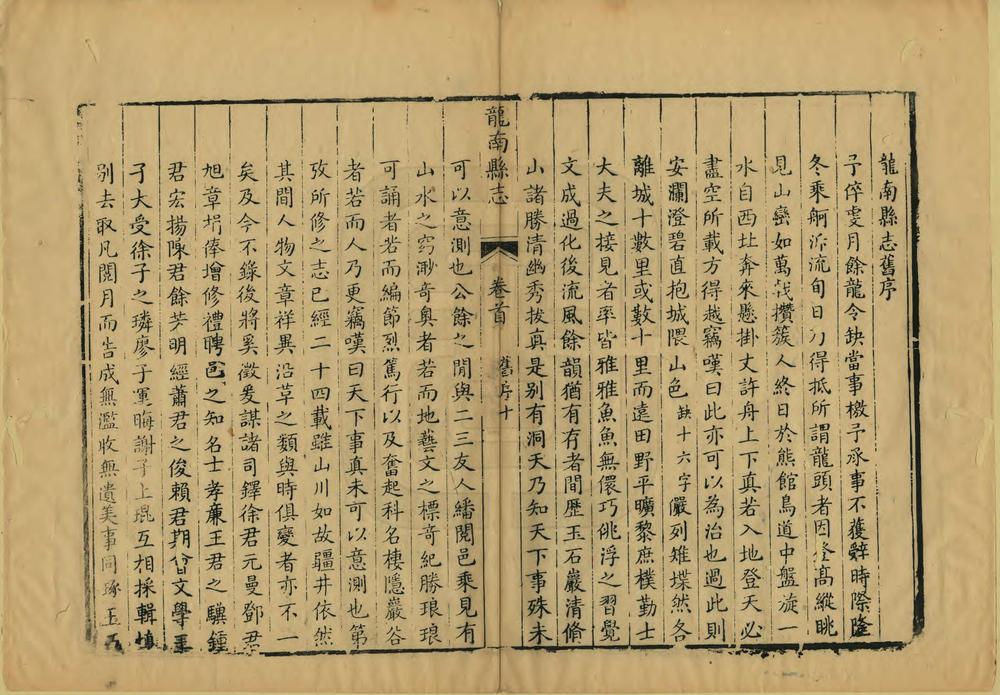 龍南縣志舊序
予倅雩月餘龍令缺當事檄予承事不獲辤時際隆
冬乘舸泝流旬日刀得抵所謂龍頭者因登高縱眺
見山巒如萬㦸攢簇人終日於熊館鳥道中盤旋一
水自西北奔來懸掛丈許舟上下真若入地登天必
盡空所載方得越竊嘆曰此亦可以為治也過此則
安瀾澄碧直抱城隈山色缺十六字儼列雉堞然各
離城十數里或數十里而遠田野平曠黎庶樸勤士
大夫之接見者率皆雅雅魚魚無儇巧佻浮之習覺
文成過化後流風餘韻猶有存者間歷玉石巖清脩
山諸勝清幽秀拔真是别有洞天乃知天下事殊未
龍南縣志 卷首 舊序十
可以意測也公餘之閒與二三友人繙閱邑乘見有
山水之窈渺奇奥者若而地藝文之標奇紀勝琅琅
可誦者若而編節烈篤行以及奮起科名棲隱巖谷
者若而人乃更竊嘆曰天下事真未可以意測也第
攷所修之志已經二十四載雖山川如故疆井依然
其間人物文章祥異沿革之類與時俱變者亦不一
矣及今不錄後將奚徵爰謀諸司鐸徐君元曼鄧君
旭章捐俸增修禮聘邑之知名士孝亷王君之驥鍾
君宏揚陳君餘芳明經蕭君之俊賴君期谷文學王
子大受徐子之璘廖子運晦謝子上琨互相採輯慎
别去取凡閱月而告成無濫收無遺美事同琢玉